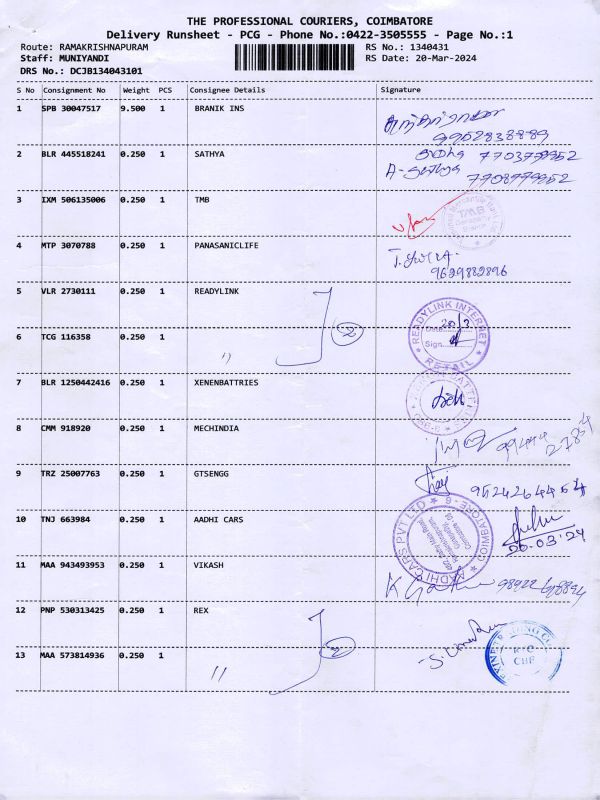 THE PROFESSIONAL COURIERS, COIMBATORE
Delivery Runsheet - PCG - Phone No.:0422-3505555 - Page No.:1
Route: RAMAKRISHNAPURAM RS No.: 1340431
Staff: MUNIYANDI RS Date: 20-Mar-2024
DRS No.: DCJB134043101
S No Consignment No Weight PCS Consignee Details Signature
1 SPB 30047517 9.500 1 BRANIK INS
9952838889
2 BLR 445518241 0.250 1 SATHYA
3 IXM 506135006 0.250 1 TMB
TMB
4 MTP 3070788 0.250 1 PANASANICLIFE
9629882896
5 VLR 2730111 0.250 1 READYLINK
READYLINK INTERNET
Date 20/3
Sign
RETAIL
6 TCG 116358 0.250 1 " 2
7 BLR 1250442416 0.250 1 XENENBATTRIES
8 CMM 918920 0.250 1 MECHINDIA
9 TRZ 25007763 0.250 1 GTSENGG
10 TNJ 663984 0.250 1 AADHI CARS
AADHI CARS PVT LTD
COIMBATORE - 6
20.03.24
11 MAA 943493953 0.250 1 VIKASH
12 PNP 530313425 0.250 1 REX
13 MAA 573814936 0.250 1 " 2
CBE